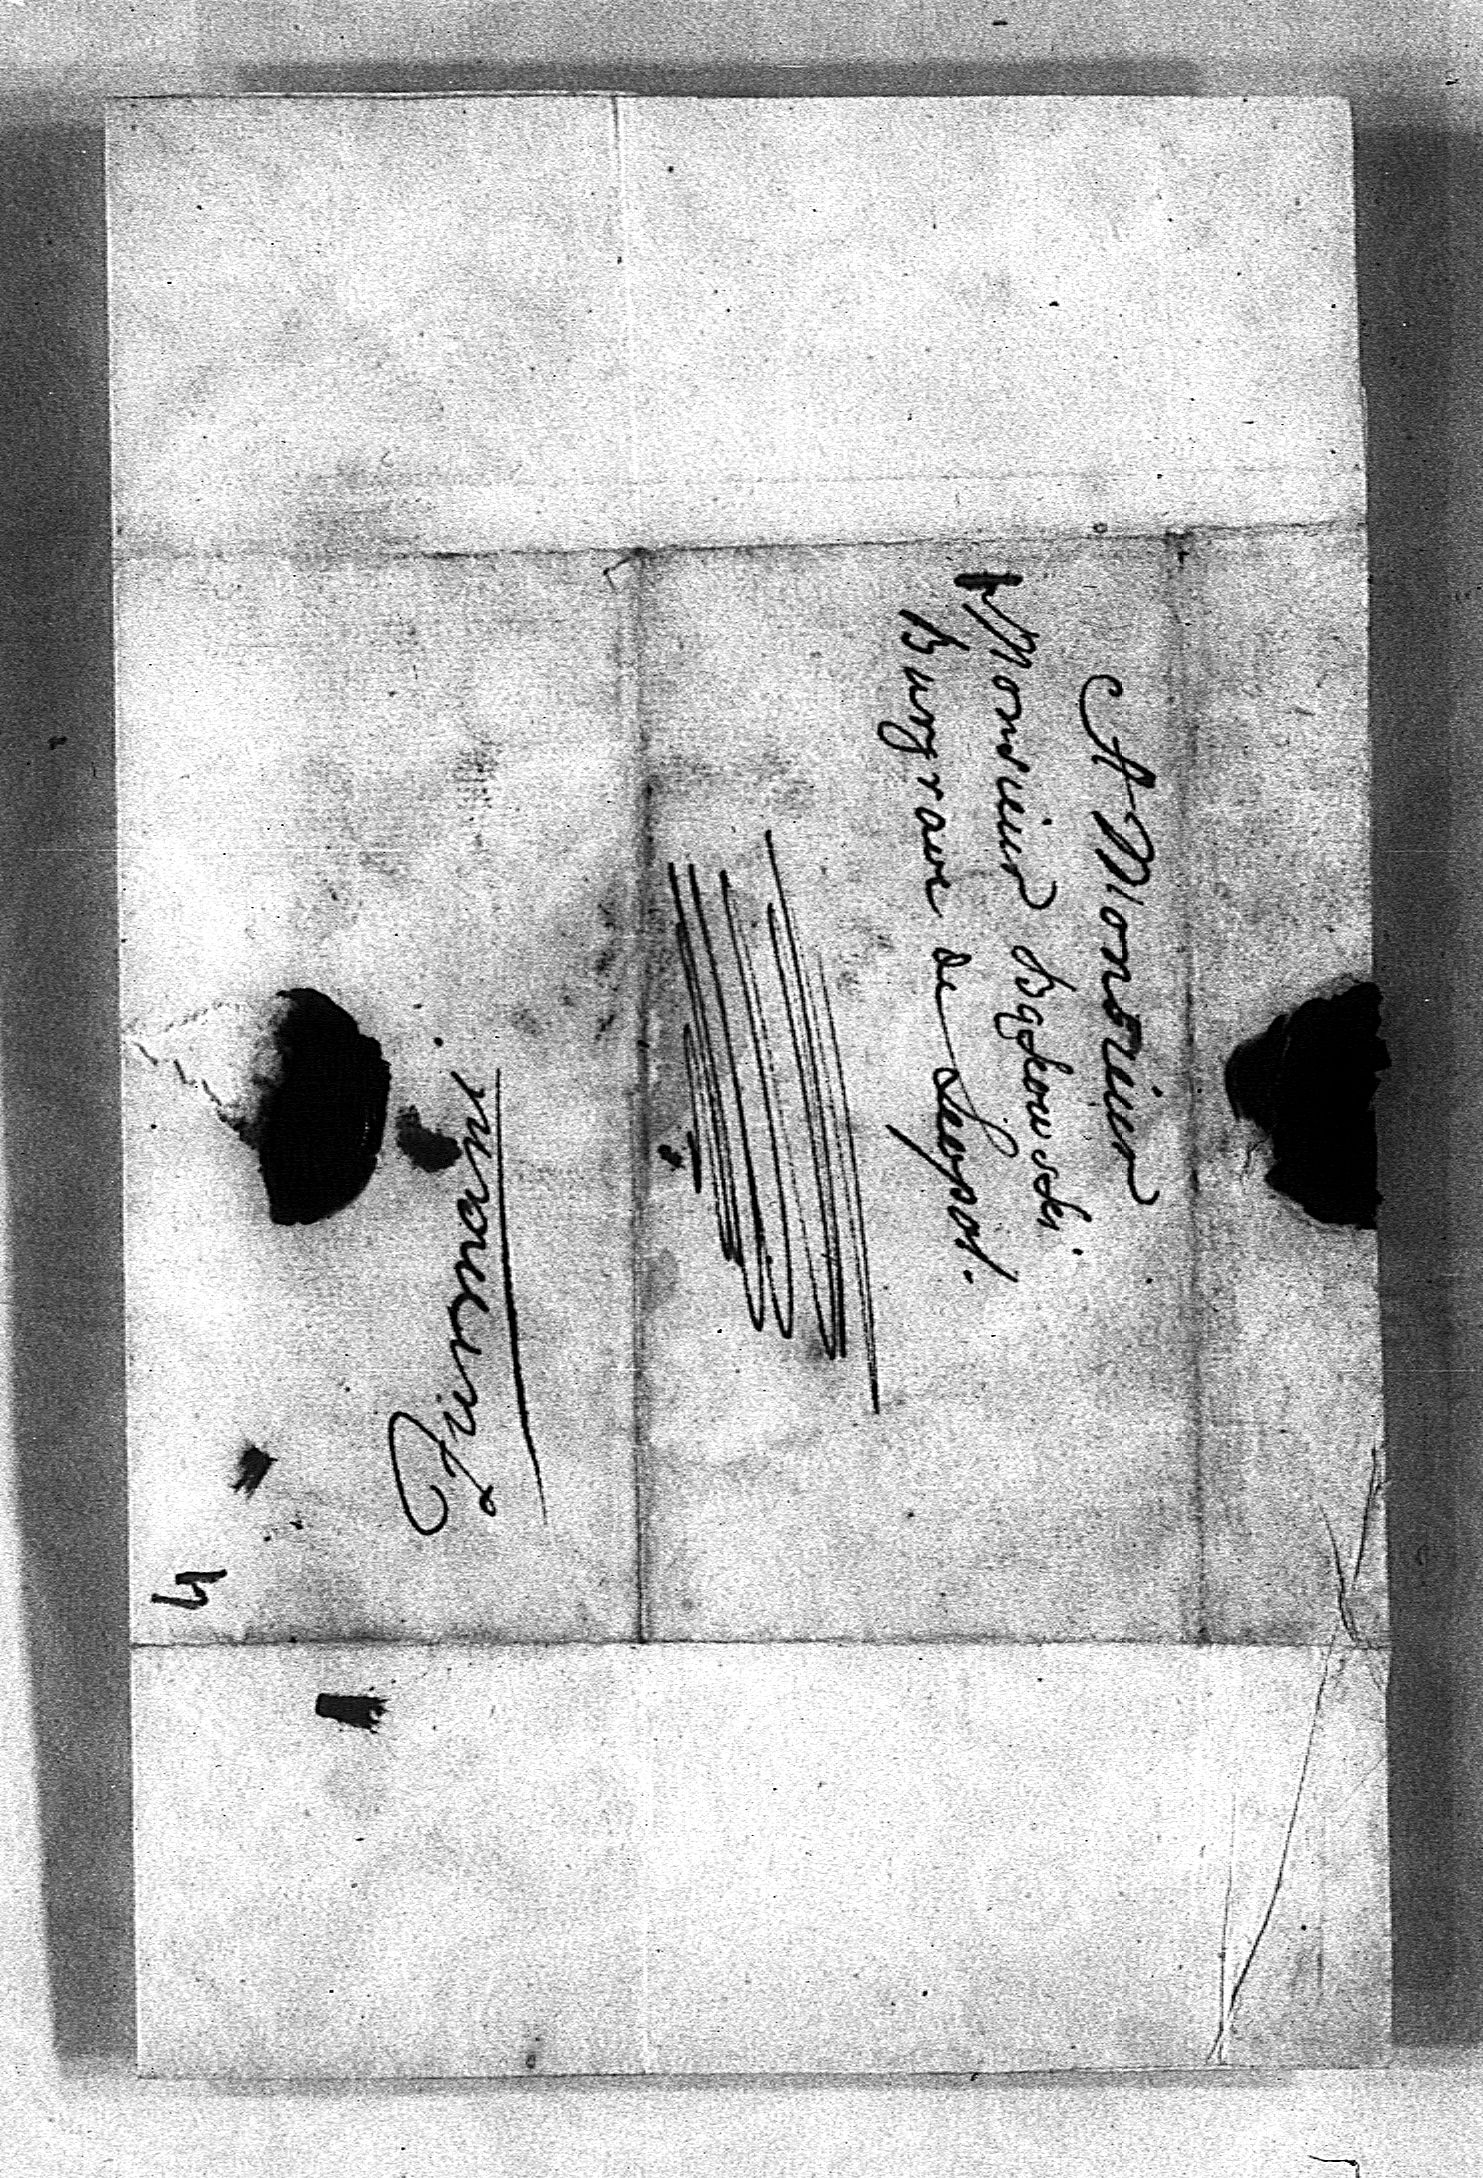 A Monsieur
Monsieur Bqgkowski
Burgrave de Leopol.
Fiumani
4